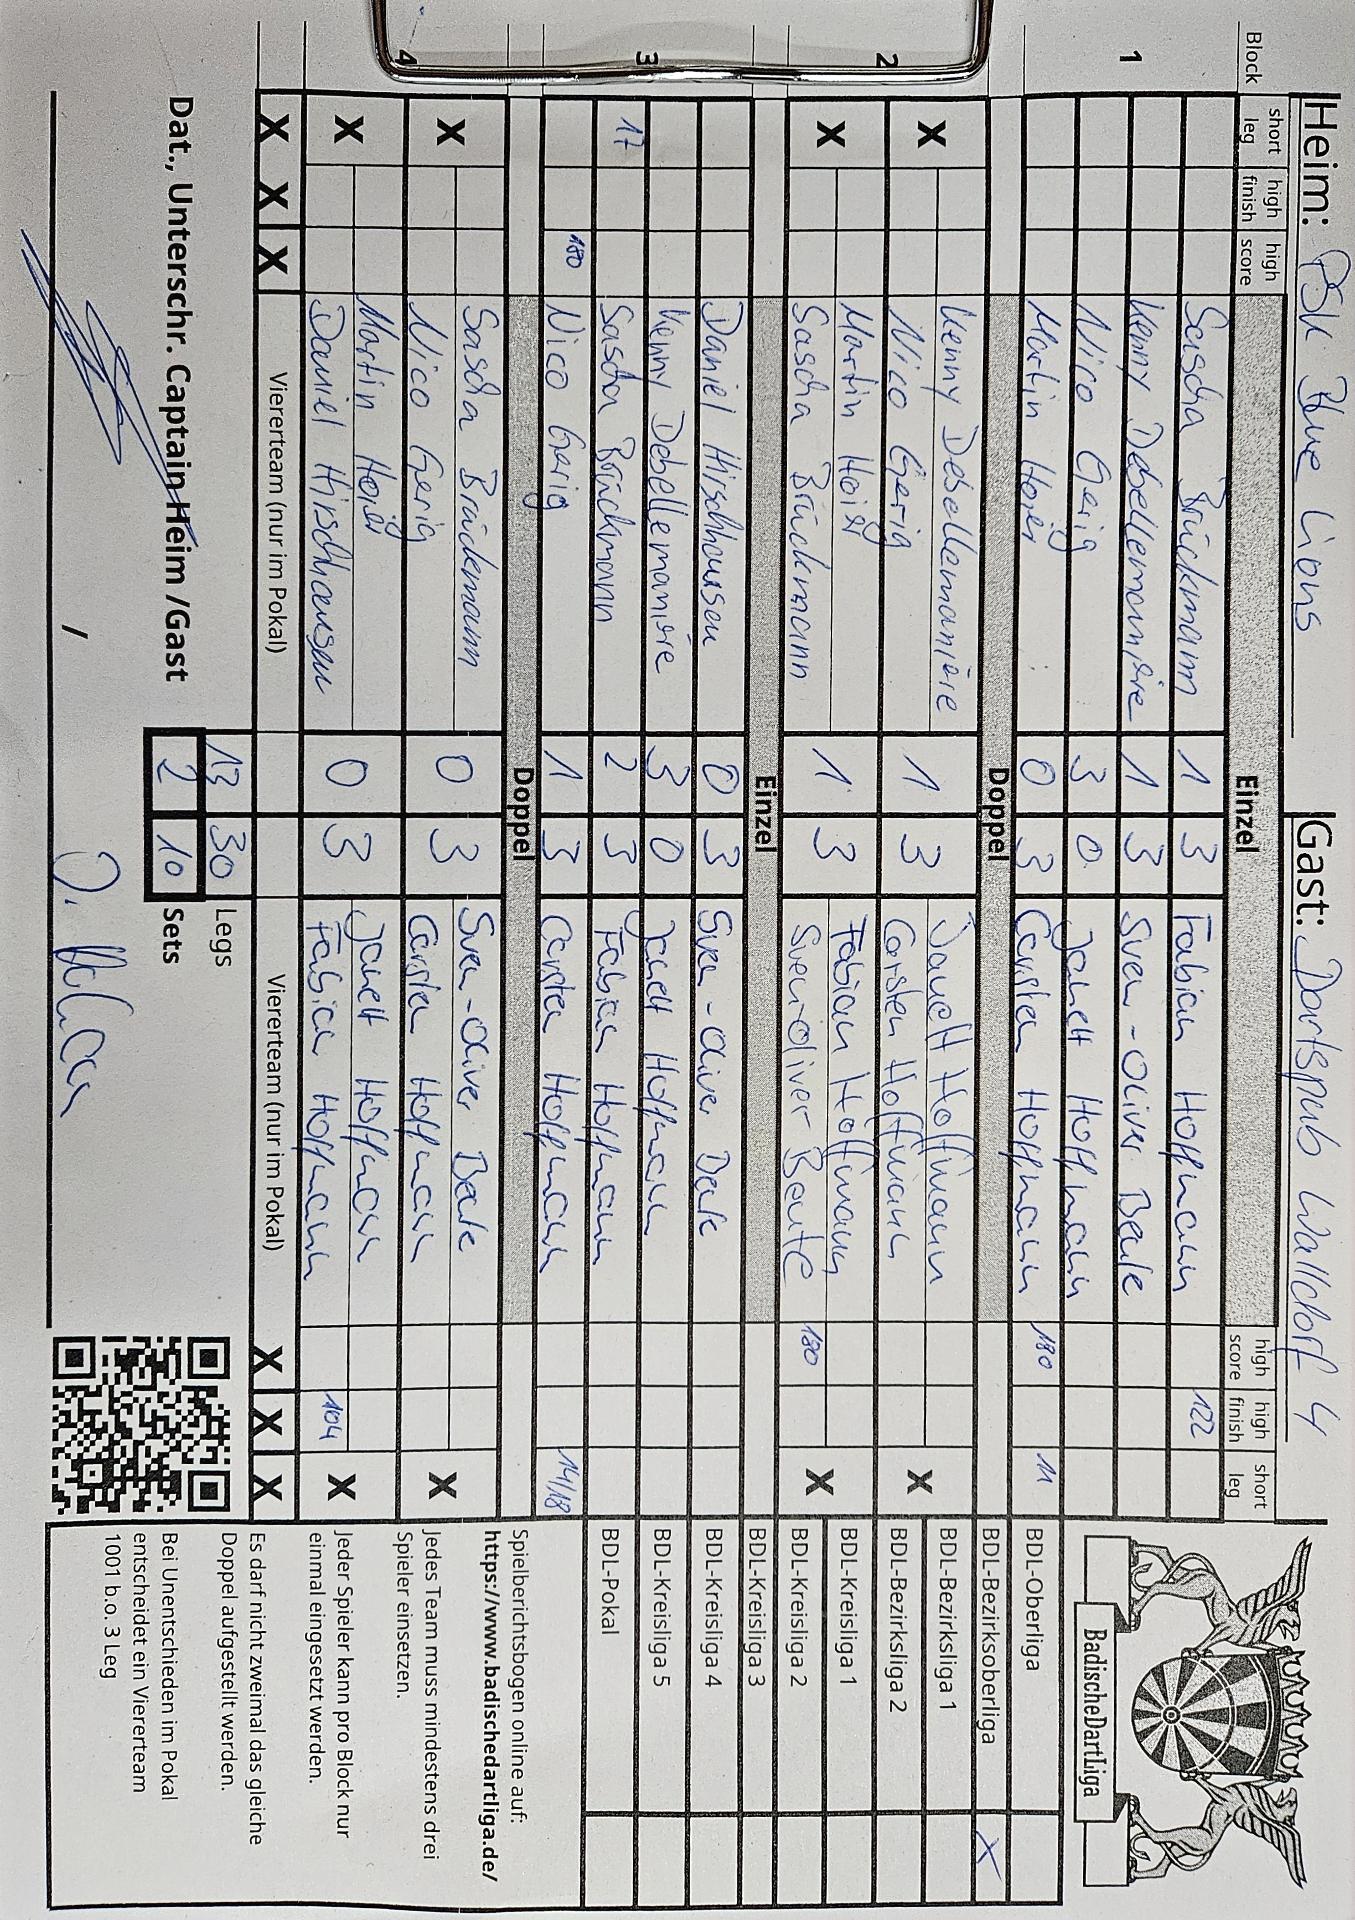 Heim: PSK Blue Lions Gast: Dartspub Walldorf 4
Block short leg high finish high score Einzel high score high finish short leg
Sascha Brückmann 1 3 Fabian Hoffmann 122
1 Kenny Debellemanière 1 3 Sven-Oliver Beule
Nico Gerig 3 0 Janett Hoffmann
Martin Hoier 0 3 Carsten Hoffmann 180 11
Doppel
Kenny Debellemanière Janett Hoffmann
2 X 1 3 X
Nico Gerig Carsten Hoffmann
Martin Hoier Fabian Hoffmann
X 1 3 X
Sascha Brückmann Sven-Oliver Beute 180
Einzel
Daniel Hirschhausen 0 3 Sven-Oliver Beule
3 Kenny Debellemanière 3 0 Janett Hoffmann
17 Sascha Brückmann 2 3 Fabian Hoffmann
180 Nico Gerig 1 3 Carsten Hoffmann 14/18
Doppel
Sascha Brückmann Sven-Oliver Beule
4 X 0 3 X
Nico Gerig Carsten Hoffmann
Martin Hoier Janett Hoffmann
X 0 3 X
Daniel Hirschhausen Fabian Hoffmann 104
X X X Viererteam (nur im Pokal) Viererteam (nur im Pokal) X X X
13 30 Legs
Dat., Unterschr. Captain Heim /Gast 2 10 Sets
/
BadischeDartLiga
BDL-Oberliga
BDL-Bezirksoberliga X
BDL-Bezirksliga 1
BDL-Bezirksliga 2
BDL-Kreisliga 1
BDL-Kreisliga 2
BDL-Kreisliga 3
BDL-Kreisliga 4
BDL-Kreisliga 5
BDL-Pokal
Spielberichtsbogen online auf:
https://www.badischedartliga.de/
Jedes Team muss mindestens drei
Spieler einsetzen.
Jeder Spieler kann pro Block nur
einmal eingesetzt werden.
Es darf nicht zweimal das gleiche
Doppel aufgestellt werden.
Bei Unentschieden im Pokal
entscheidet ein Viererteam
1001 b.o. 3 Leg